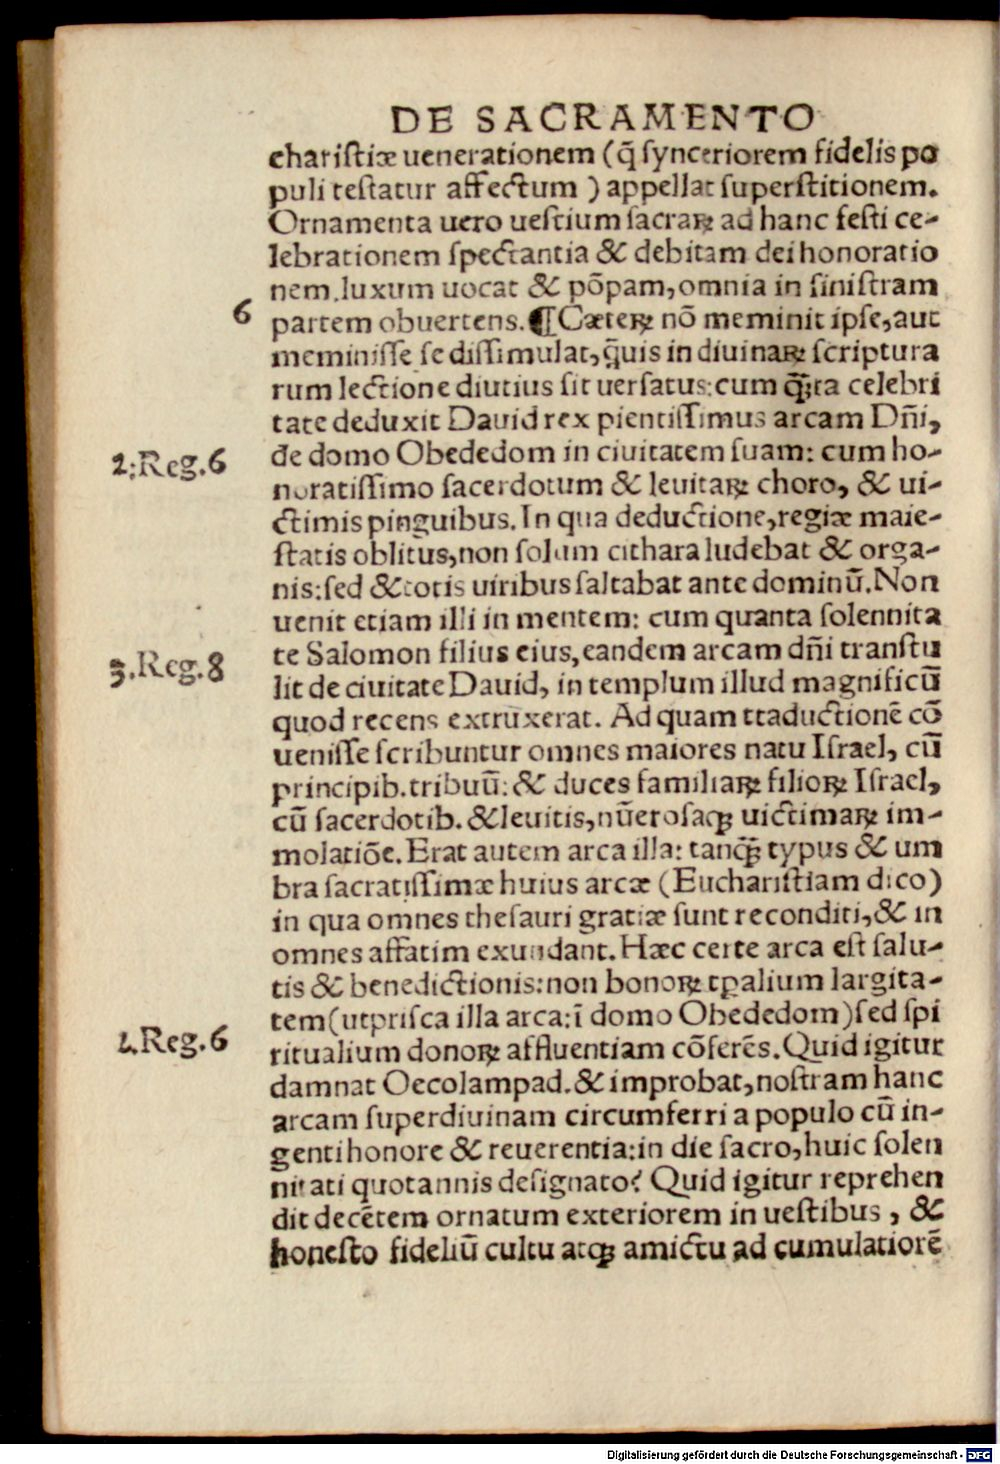 DE SACRAMENTO
chariſtiæ uenerationem (q̃ ſynceriorem fidelis po
puli teſtatur affectum ) appellat ſuperſtitionem.
Ornamenta uero ueſtium ſacraꝝ ad hanc feſti ce-
lebrationem ſpectantia & debitam dei honoratio
nem, luxum uocat & põpam, omnia in ſiniſtram
6 partem obuertens. ¶ Cæteꝝ nõ meminit ipſe, aut
meminiſſe ſe diſſimulat, q̃uis in diuinaꝝ ſcriptura
rum lectione diutius ſit uerſatus: cum q̃ꝫta celebri
tate deduxit Dauid rex pientiſſimus arcam Dñi,
2. Reg. 6 de domo Obededom in ciuitatem ſuam: cum ho-
noratiſſimo ſacerdotum & leuitaꝝ choro, & ui-
ctimis pinguibus. In qua deductione, regiæ maie-
ſtatis oblitus, non ſolum cithara ludebat & orga-
nis: ſed & totis uiribus ſaltabat ante dominũ. Non
uenit etiam illi in mentem: cum quanta ſolennita
3. Reg. 8 te Salomon filius eius, eandem arcam dñi tranſtu
lit de ciuitate Dauid, in templum illud magnificũ
quod recens extruxerat. Ad quam ttaductionẽ cõ
ueniſſe ſcribuntur omnes maiores natu Iſrael, cũ
principib. tribuũ: & duces familiaꝝ filioꝝ Iſrael,
cũ ſacerdotib. & leuitis, nũeroſaqꝫ uictimaꝝ im-
molatiõe. Erat autem arca illa: tanq̃ꝫ typus & um
bra ſacratiſſimæ huius arcæ (Euchariſtiam dico)
in qua omnes theſauri gratiæ ſunt reconditi, & in
omnes affatim exundant. Hæc certe arca eſt ſalu-
tis & benedictionis: non bonoꝝ tꝑalium largita-
tem (ut priſca illa arca: ĩ domo Obededom) ſed ſpi
2. Reg. 6 ritualium donoꝝ affluentiam cõferẽs. Quid igitur
damnat Oecolampad. & improbat, noſtram hanc
arcam ſuperdiuinam circumferri a populo cũ in-
genti honore & reuerentia: in die ſacro, huic ſolen
nitati quotannis deſignato? Quid igitur reprehen
dit decẽtem ornatum exteriorem in ueſtibus, &
honeſto fideliũ cultu atqꝫ amictu ad cumulatiorẽ
Digitalisierung gefördert durch die Deutsche Forschungsgemeinschaft - DFG